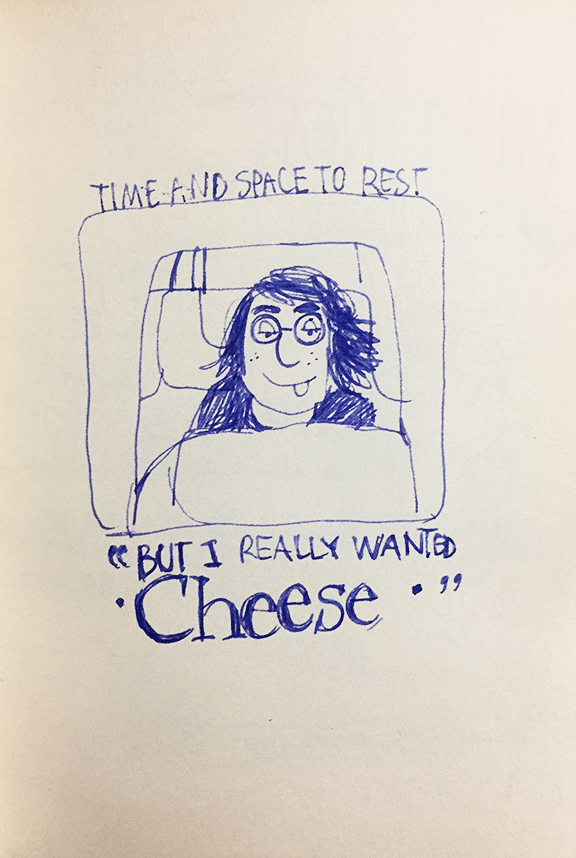 TIME AND SPACE TO REST
“BUT I REALLY WANTED
·Cheese·”